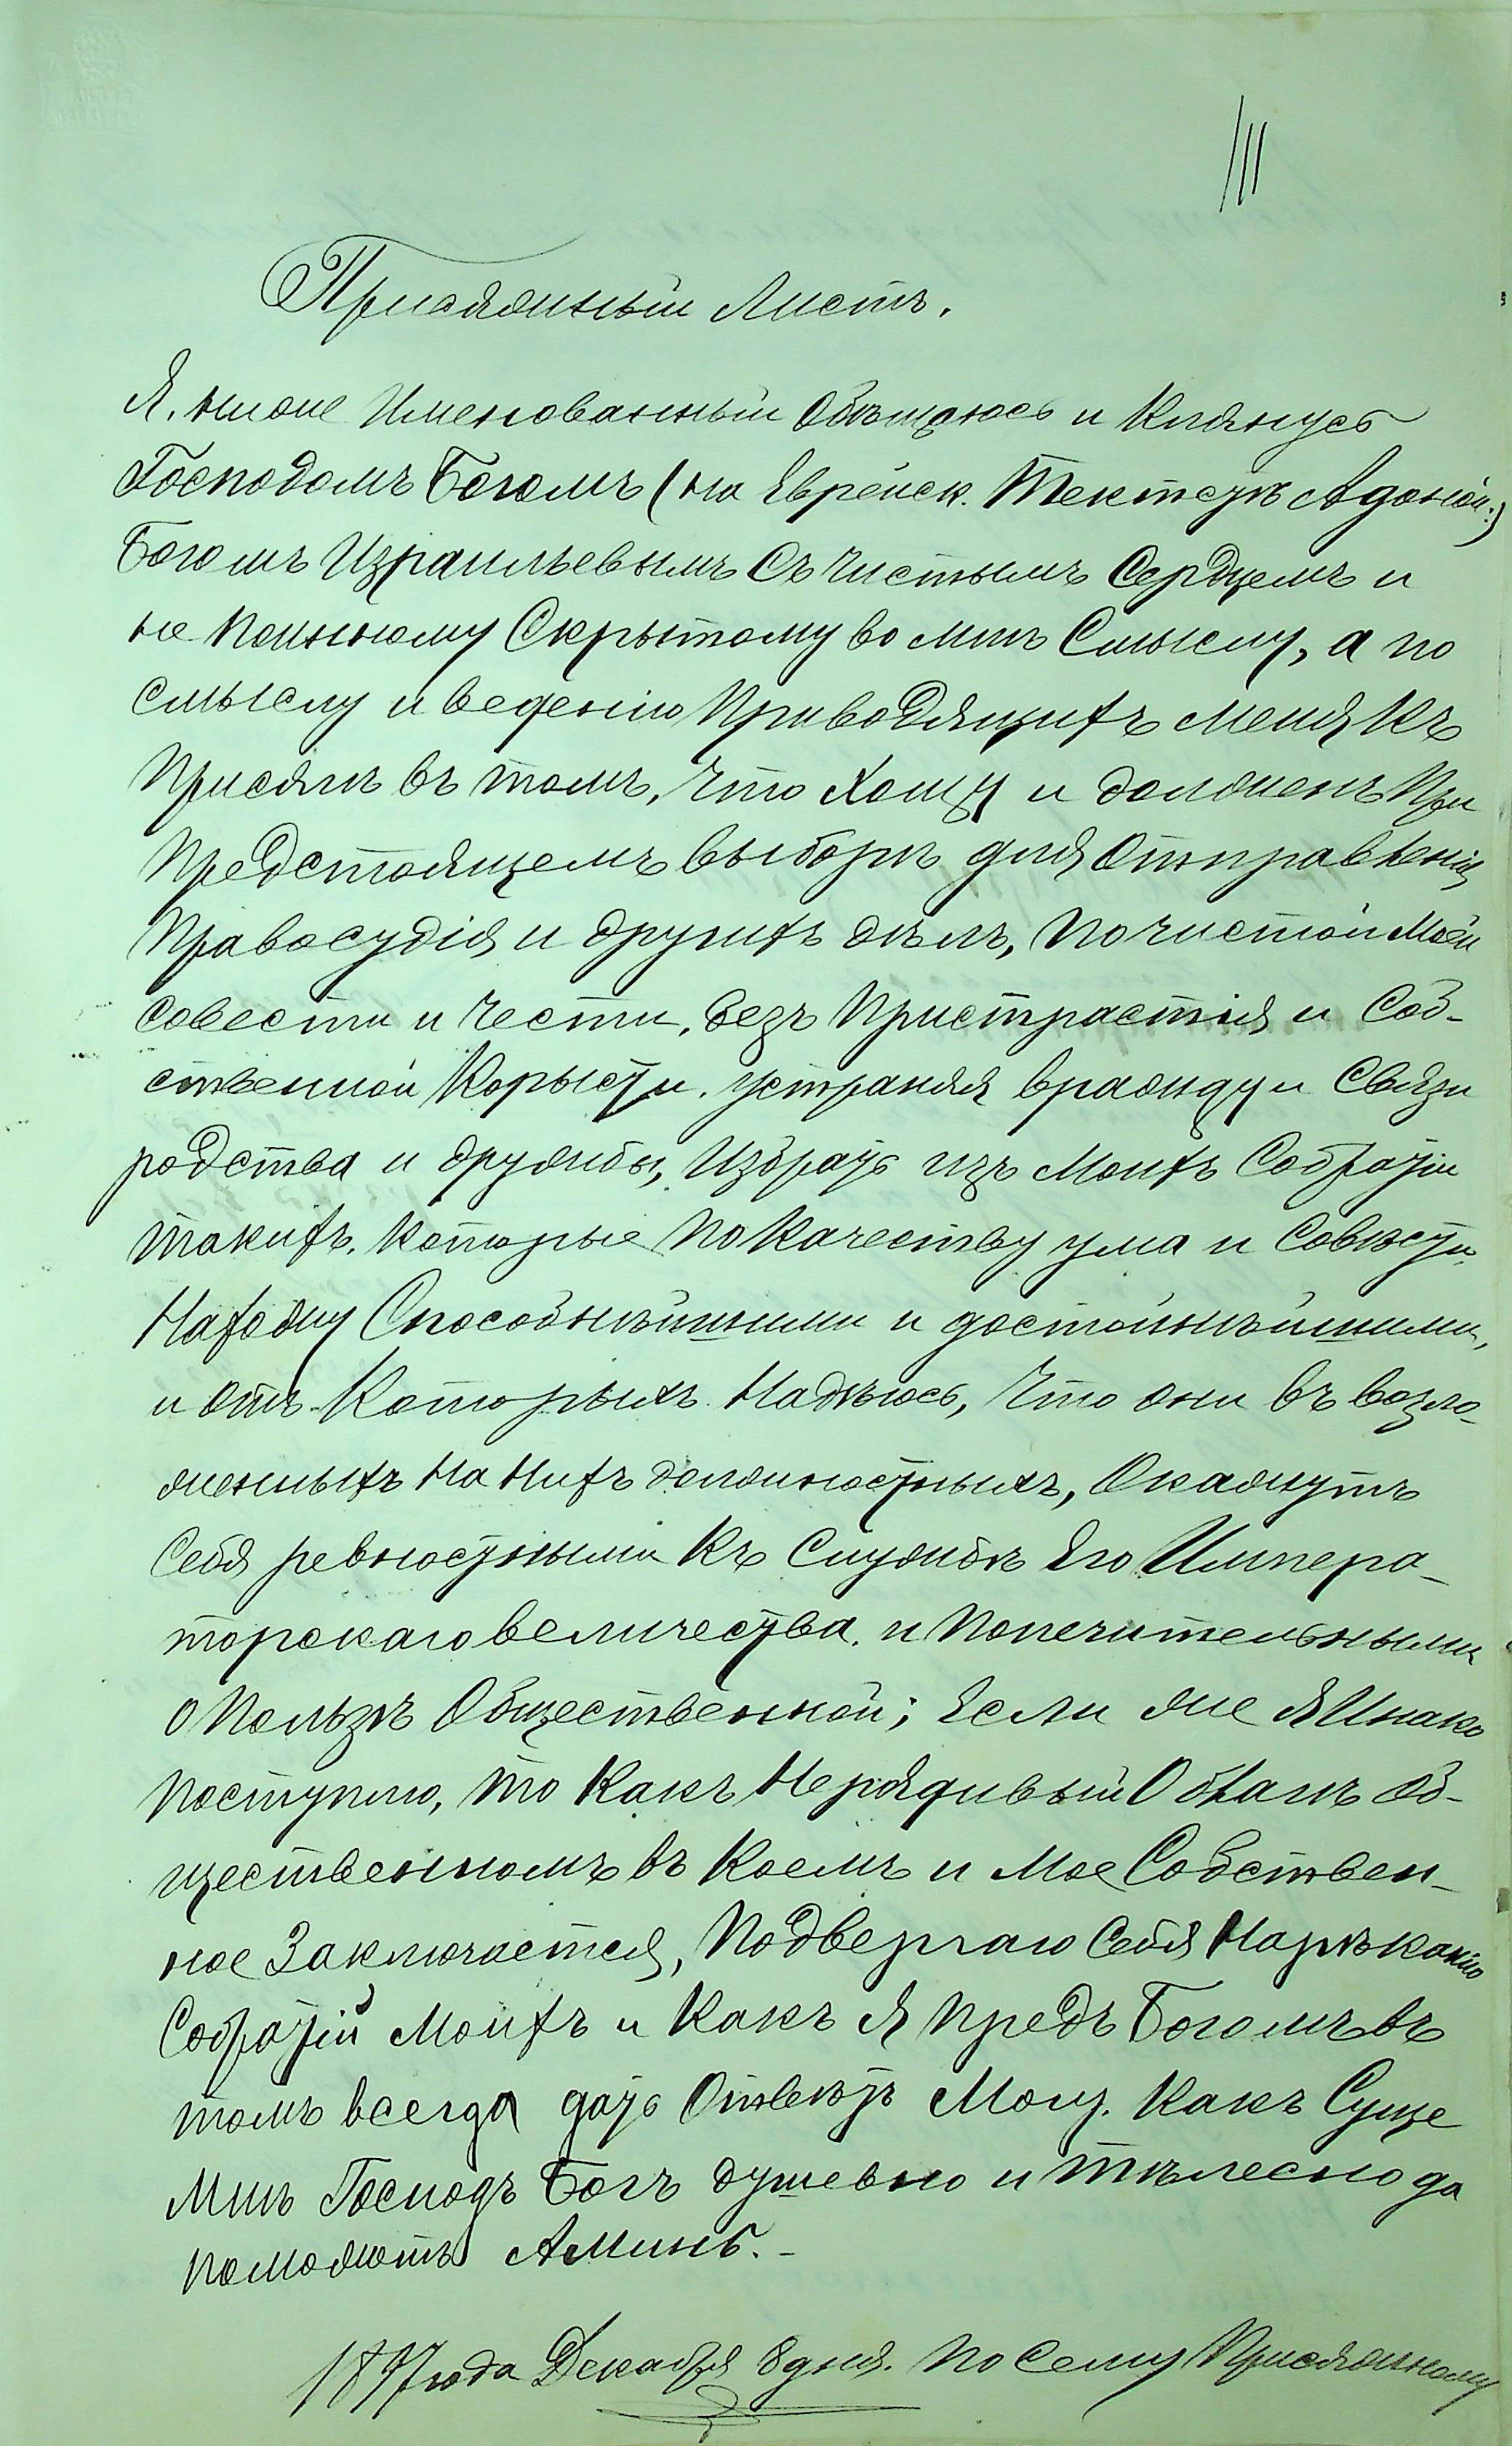 III
Присяжный Листъ.
Я. ниже Именованный Обѣщаюсь и Клянусь
Господомъ Богомъ (на Еврейск. Текстѣ Адонай:)
Богомъ Израильевымъ Съ Чистымъ Сердцемъ и
не Поинному Скрытому во мнѣ Смыслу, а по
смыслу и ведению Приводящихъ меня Къ
Присягѣ въ томъ, Что Хощу и долженъ При
Предстоящемъ выборѣ для Отправленія
Правосудія и другихъ дѣлъ, По чистой Моей
Совести и Чести, безъ Пристрастія и Соб-
ственной Корысти. устраняя вражду и Связи
родства и дружбы, Избрать изъ Моихъ Собратій
такихъ. которые По Качеству ума и Совѣсти,
Нахожу Способнѣйшими и достойнѣйшими,
и отъ Которыхъ Надѣюсь, Что они въ возло-
женныхъ На Нихъ должностныхъ, Окажутъ
Себя ревностными Къ Службѣ Его Импера-
торскаго величества. и Попечительными
о Пользѣ Общественной; Если же Я Инако
Поступлю, то Какъ Нерядивый О благѣ об-
щественномъ въ Коемъ и Мое Собствен-
ное Заключается, Подвергаю Себя Нарѣканію
Собратій Моихъ и Какъ Я Предъ Богомъ въ
томъ всегда дать Отвѣтъ Могу. Какъ Суще
Мнѣ Господь Богъ душевно и Тѣлесно да
Поможетъ Аминь.-
1897 года Декабря 8 дня. По Сему Присяжному